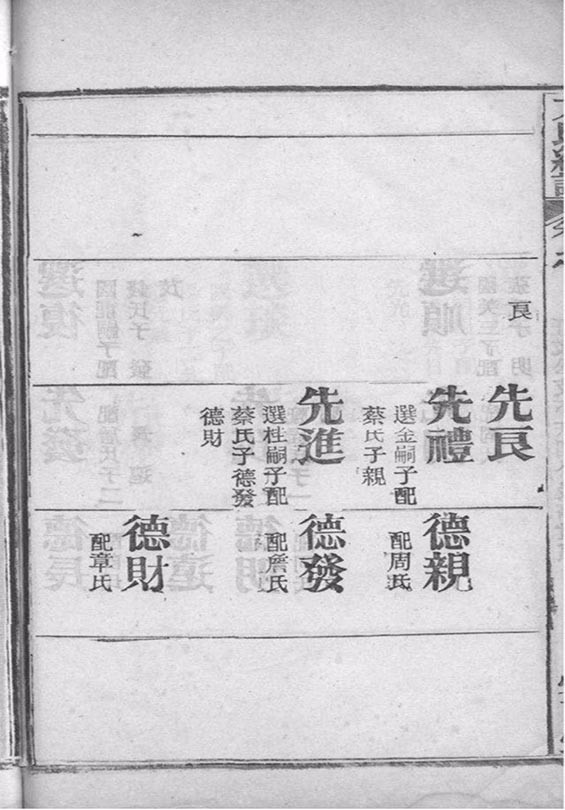 良
先良
先禮
選金嗣子配
蔡氏子親
先進
選桂嗣子配
蔡氏子德發
德財
德親
配周氏
德發
配詹氏
德財
配章氏